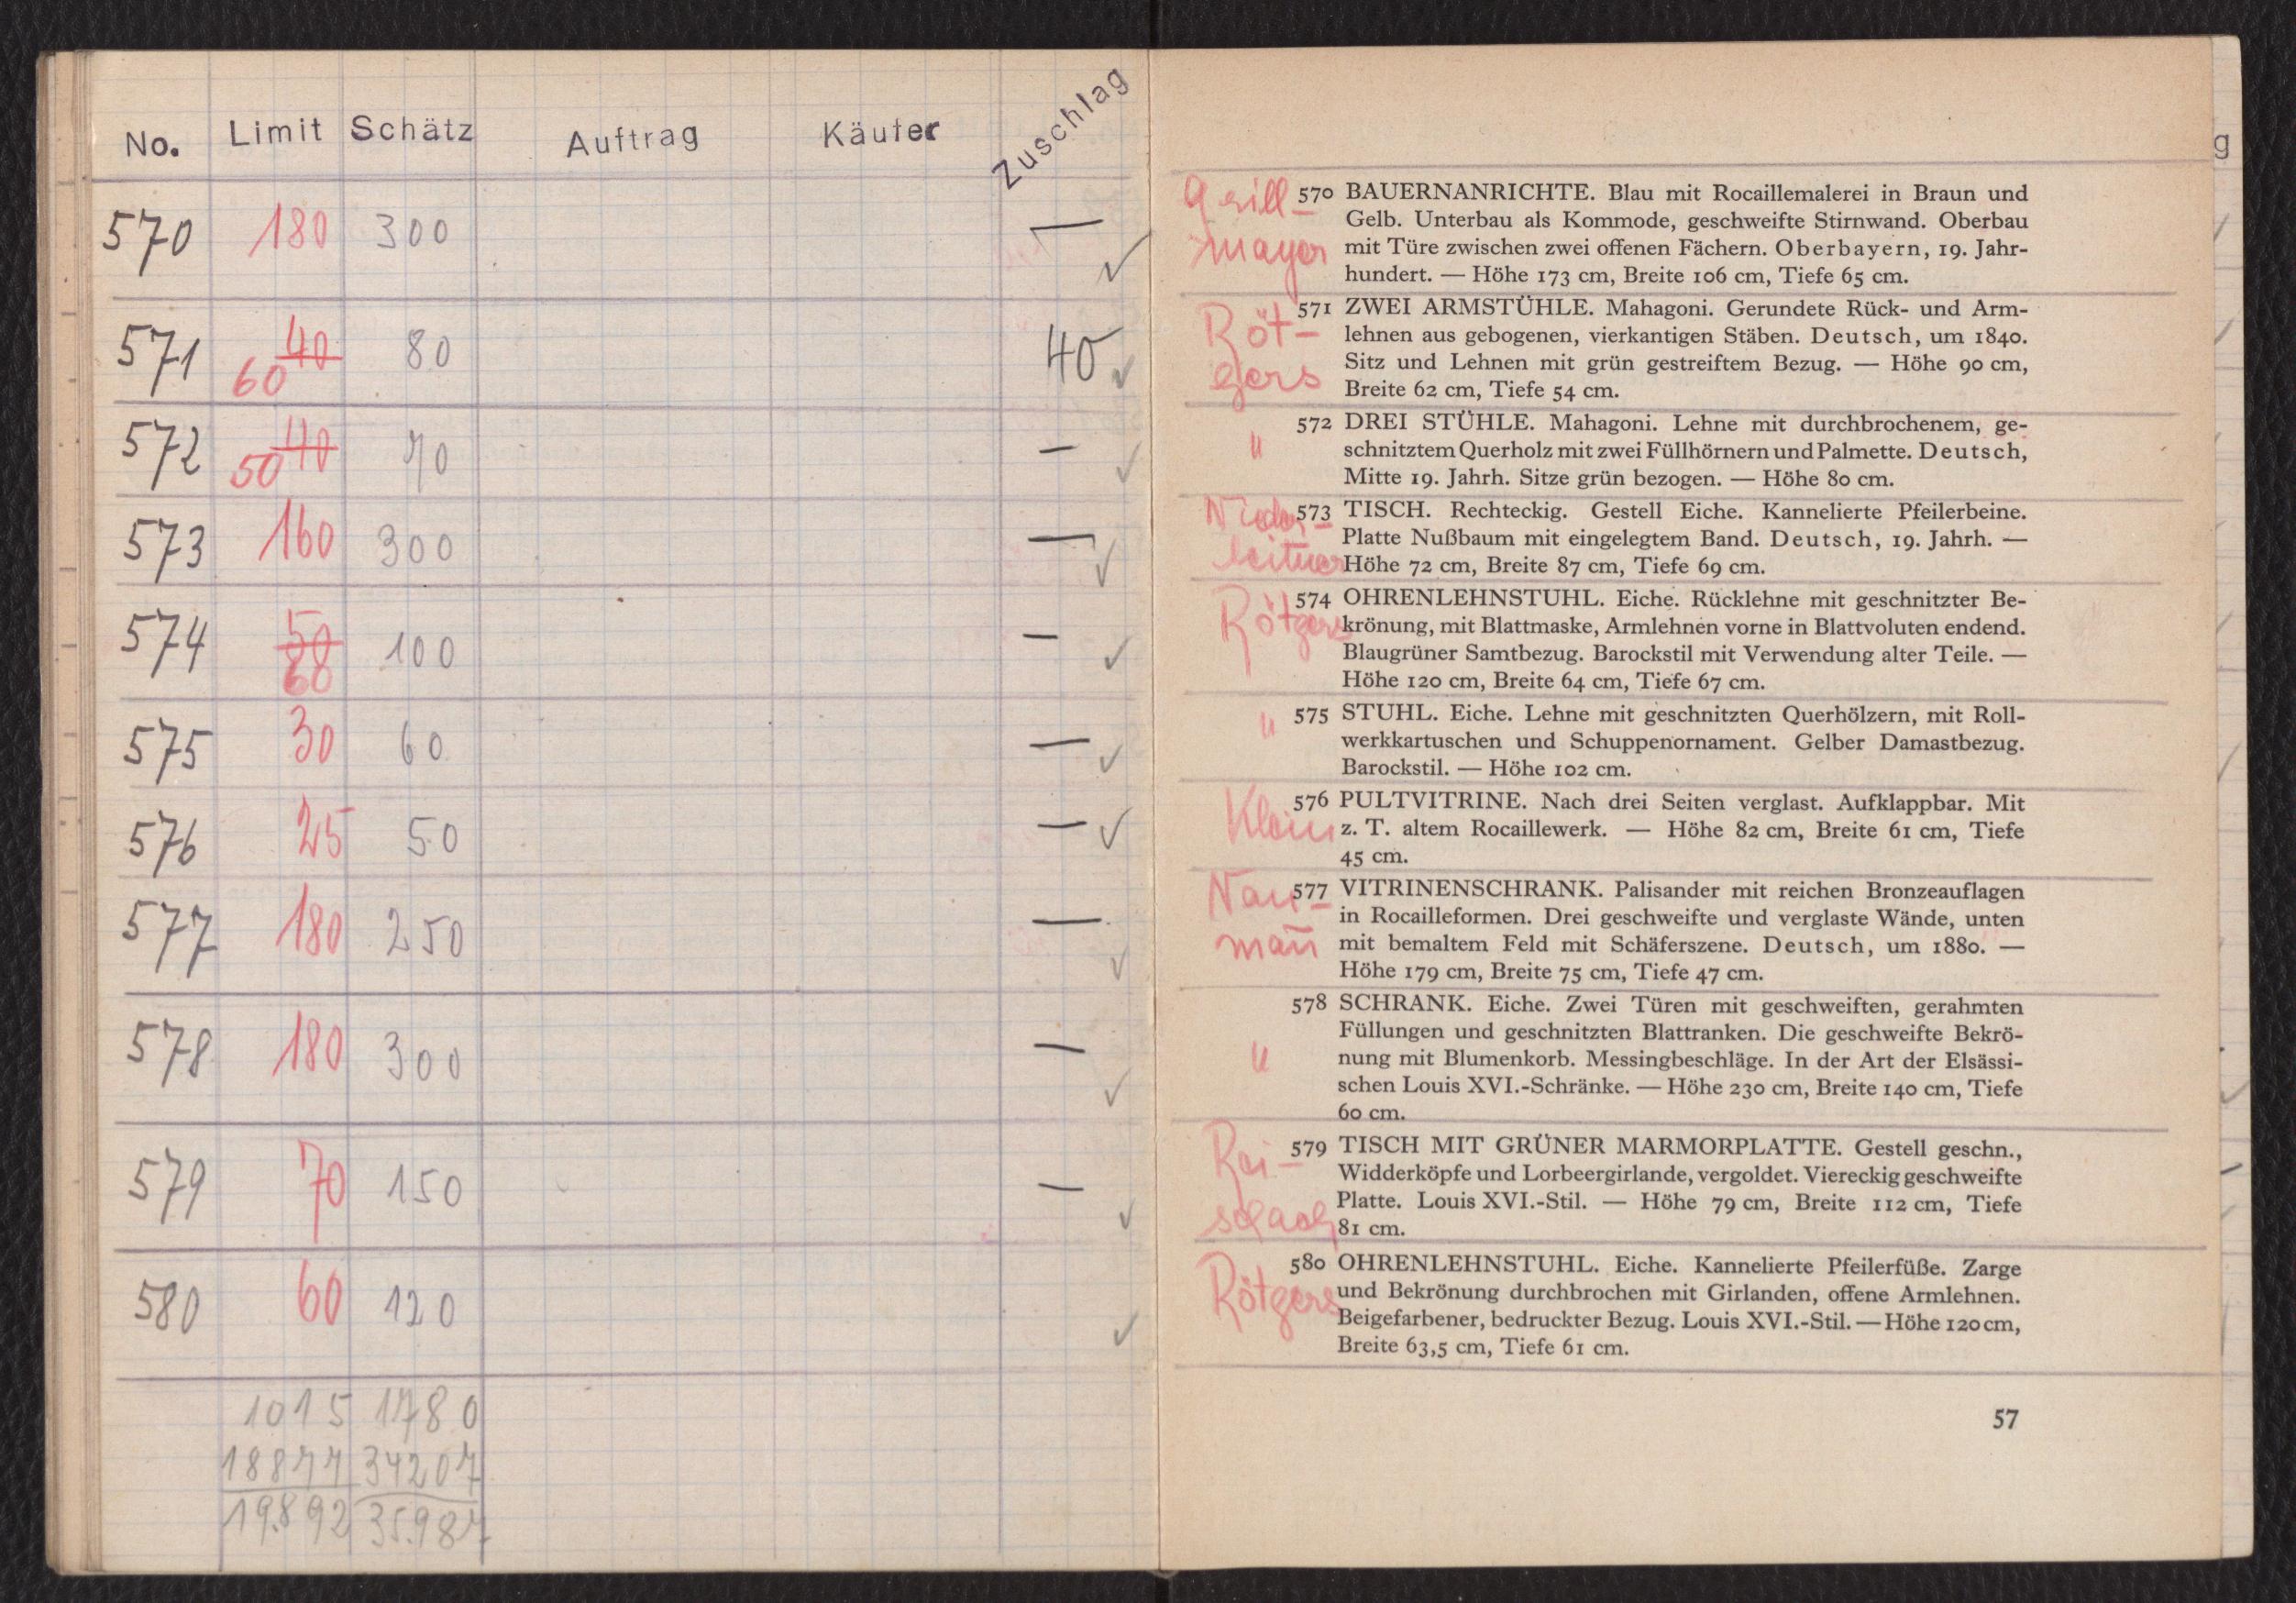 No. Limit Schätz Auftrag Käufer Zuschlag
570 180 300 —
571 40 60 80 40
572 40 50 70 —
573 160 300 —
574 50 60 100 —
575 30 60 —
576 25 50 —
577 180 250 —
578 180 300 —
579 70 150 —
580 60 120
1015 1780
18877 34207
19.892 35.987
g
Grill-
mayer
570 BAUERNANRICHTE. Blau mit Rocaillemalerei in Braun und
Gelb. Unterbau als Kommode, geschweifte Stirnwand. Oberbau
mit Türe zwischen zwei offenen Fächern. Oberbayern, 19. Jahr-
hundert. — Höhe 173 cm, Breite 106 cm, Tiefe 65 cm.
Röt-
gers
571 ZWEI ARMSTÜHLE. Mahagoni. Gerundete Rück- und Arm-
lehnen aus gebogenen, vierkantigen Stäben. Deutsch, um 1840.
Sitz und Lehnen mit grün gestreiftem Bezug. — Höhe 90 cm,
Breite 62 cm, Tiefe 54 cm.
"
572 DREI STÜHLE. Mahagoni. Lehne mit durchbrochenem, ge-
schnitztem Querholz mit zwei Füllhörnern und Palmette. Deutsch,
Mitte 19. Jahrh. Sitze grün bezogen. — Höhe 80 cm.
Nieder-
leitner
573 TISCH. Rechteckig. Gestell Eiche. Kannelierte Pfeilerbeine.
Platte Nußbaum mit eingelegtem Band. Deutsch, 19. Jahrh. —
Höhe 72 cm, Breite 87 cm, Tiefe 69 cm.
Rötgers
574 OHRENLEHNSTUHL. Eiche. Rücklehne mit geschnitzter Be-
krönung, mit Blattmaske, Armlehnen vorne in Blattvoluten endend.
Blaugrüner Samtbezug. Barockstil mit Verwendung alter Teile. —
Höhe 120 cm, Breite 64 cm, Tiefe 67 cm.
"
575 STUHL. Eiche. Lehne mit geschnitzten Querhölzern, mit Roll-
werkkartuschen und Schuppenornament. Gelber Damastbezug.
Barockstil. — Höhe 102 cm.
Klein
576 PULTVITRINE. Nach drei Seiten verglast. Aufklappbar. Mit
z. T. altem Rocaillewerk. — Höhe 82 cm, Breite 61 cm, Tiefe
45 cm.
Nau-
mañ
577 VITRINENSCHRANK. Palisander mit reichen Bronzeauflagen
in Rocailleformen. Drei geschweifte und verglaste Wände, unten
mit bemaltem Feld mit Schäferszene. Deutsch, um 1880. —
Höhe 179 cm, Breite 75 cm, Tiefe 47 cm.
"
578 SCHRANK. Eiche. Zwei Türen mit geschweiften, gerahmten
Füllungen und geschnitzten Blattranken. Die geschweifte Bekrö-
nung mit Blumenkorb. Messingbeschläge. In der Art der Elsässi-
schen Louis XVI.-Schränke. — Höhe 230 cm, Breite 140 cm, Tiefe
60 cm.
Rei-
schach
579 TISCH MIT GRÜNER MARMORPLATTE. Gestell geschn.,
Widderköpfe und Lorbeergirlande, vergoldet. Viereckig geschweifte
Platte. Louis XVI.-Stil. — Höhe 79 cm, Breite 112 cm, Tiefe
81 cm.
Rötgers
580 OHRENLEHNSTUHL. Eiche. Kannelierte Pfeilerfüße. Zarge
und Bekrönung durchbrochen mit Girlanden, offene Armlehnen.
Beigefarbener, bedruckter Bezug. Louis XVI.-Stil. — Höhe 120 cm,
Breite 63,5 cm, Tiefe 61 cm.
57